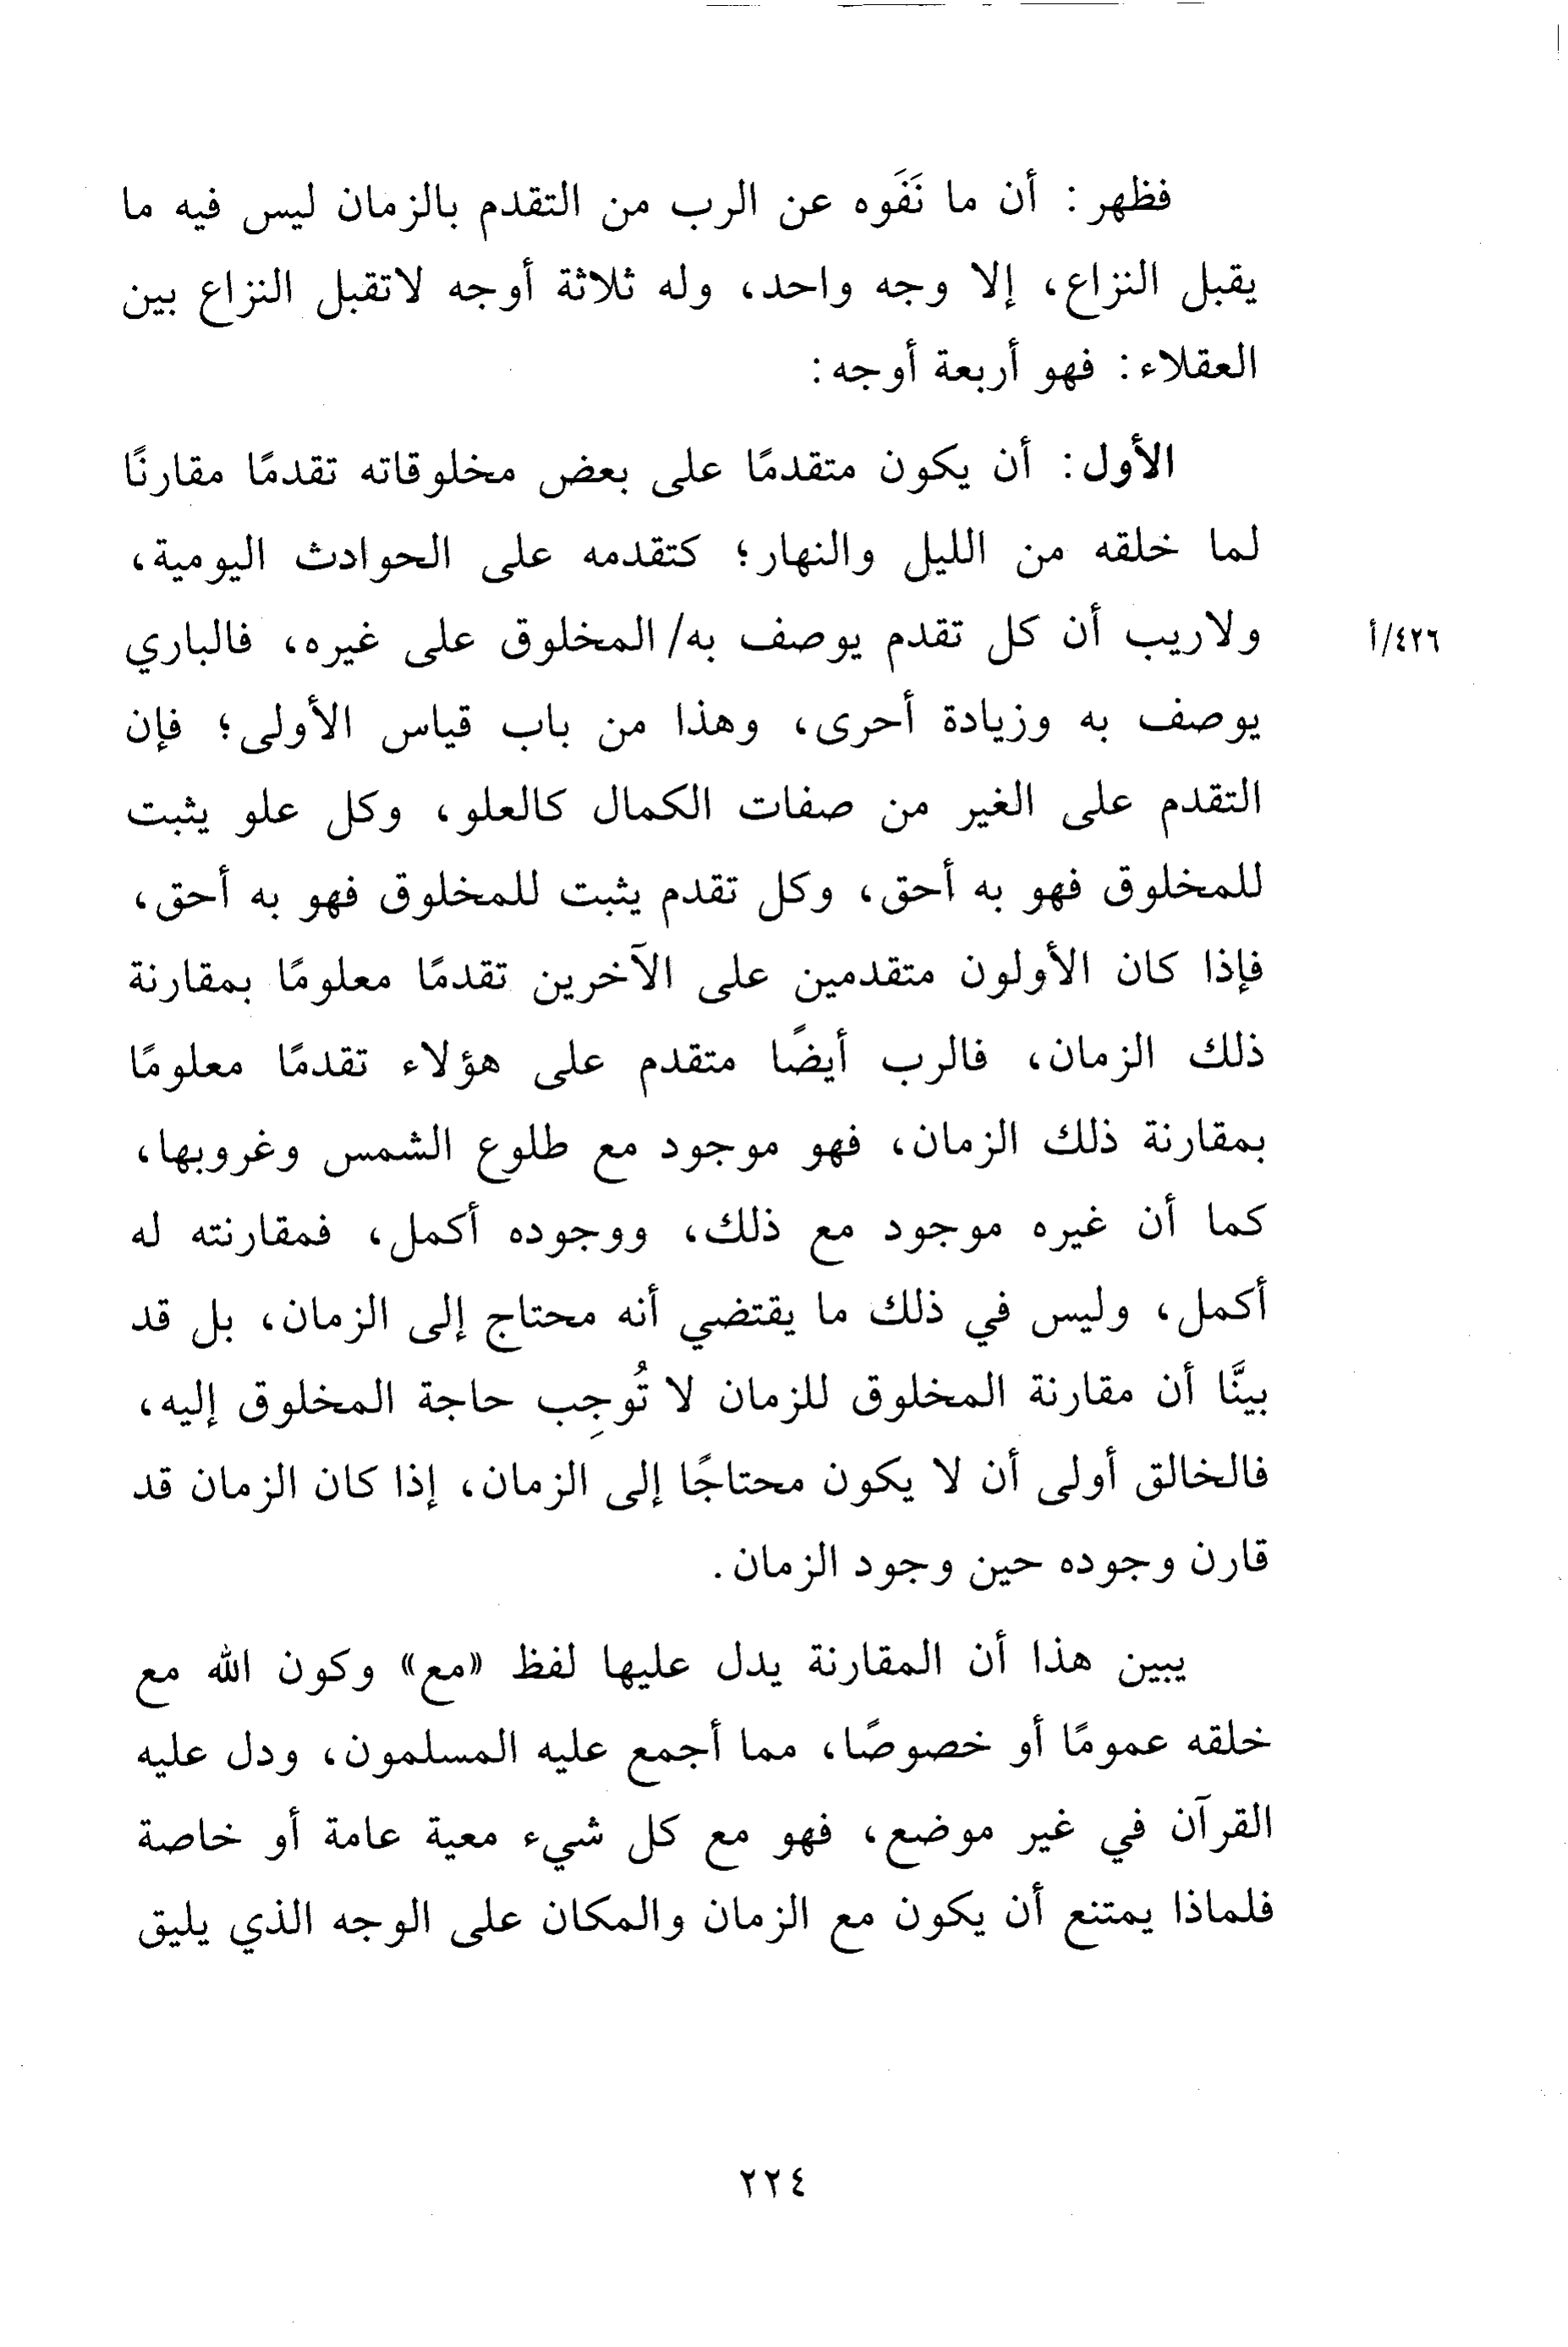 فظهر : أن ما نَفَوه عن الرب من التقدم بالزمان ليس فيه ما
يقبل النزاع، إلا وجه واحد، وله ثلاثة أوجه لاتقبل النزاع بين
العقلاء: فهو أربعة أوجه:
الأول: أن يكون متقدمًا على بعض مخلوقاته تقدمًا مقارنًا
لما خلقه من الليل والنهار؛ كتقدمه على الحوادث اليومية،
ولاريب أن كل تقدم يوصف به/ المخلوق على غيره، فالباري
٤٢٦/أ
يوصف به وزيادة أحرى، وهذا من باب قياس الأولى؛ فإن
التقدم على الغير من صفات الكمال كالعلو، وكل علو يثبت
للمخلوق فهو به أحق، وكل تقدم يثبت للمخلوق فهو به أحق،
فإذا كان الأولون متقدمين على الآخرين تقدمًا معلومًا بمقارنة
ذلك الزمان، فالرب أيضًا متقدم على هؤلاء تقدمًا معلومًا
بمقارنة ذلك الزمان، فهو موجود مع طلوع الشمس وغروبها،
كما أن غيره موجود مع ذلك، ووجوده أكمل، فمقارنته له
أكمل، وليس في ذلك ما يقتضي أنه محتاج إلى الزمان، بل قد
بينَّا أن مقارنة المخلوق للزمان لا تُوجِب حاجة المخلوق إليه،
فالخالق أولى أن لا يكون محتاجًا إلى الزمان، إذا كان الزمان قد
قارن وجوده حين وجود الزمان.
يبين هذا أن المقارنة يدل عليها لفظ «مع» وكون الله مع
خلقه عمومًا أو خصوصًا، مما أجمع عليه المسلمون، ودل عليه
القرآن في غير موضع، فهو مع كل شيء معية عامة أو خاصة
فلماذا يمتنع أن يكون مع الزمان والمكان على الوجه الذي يليق
٢٢٤